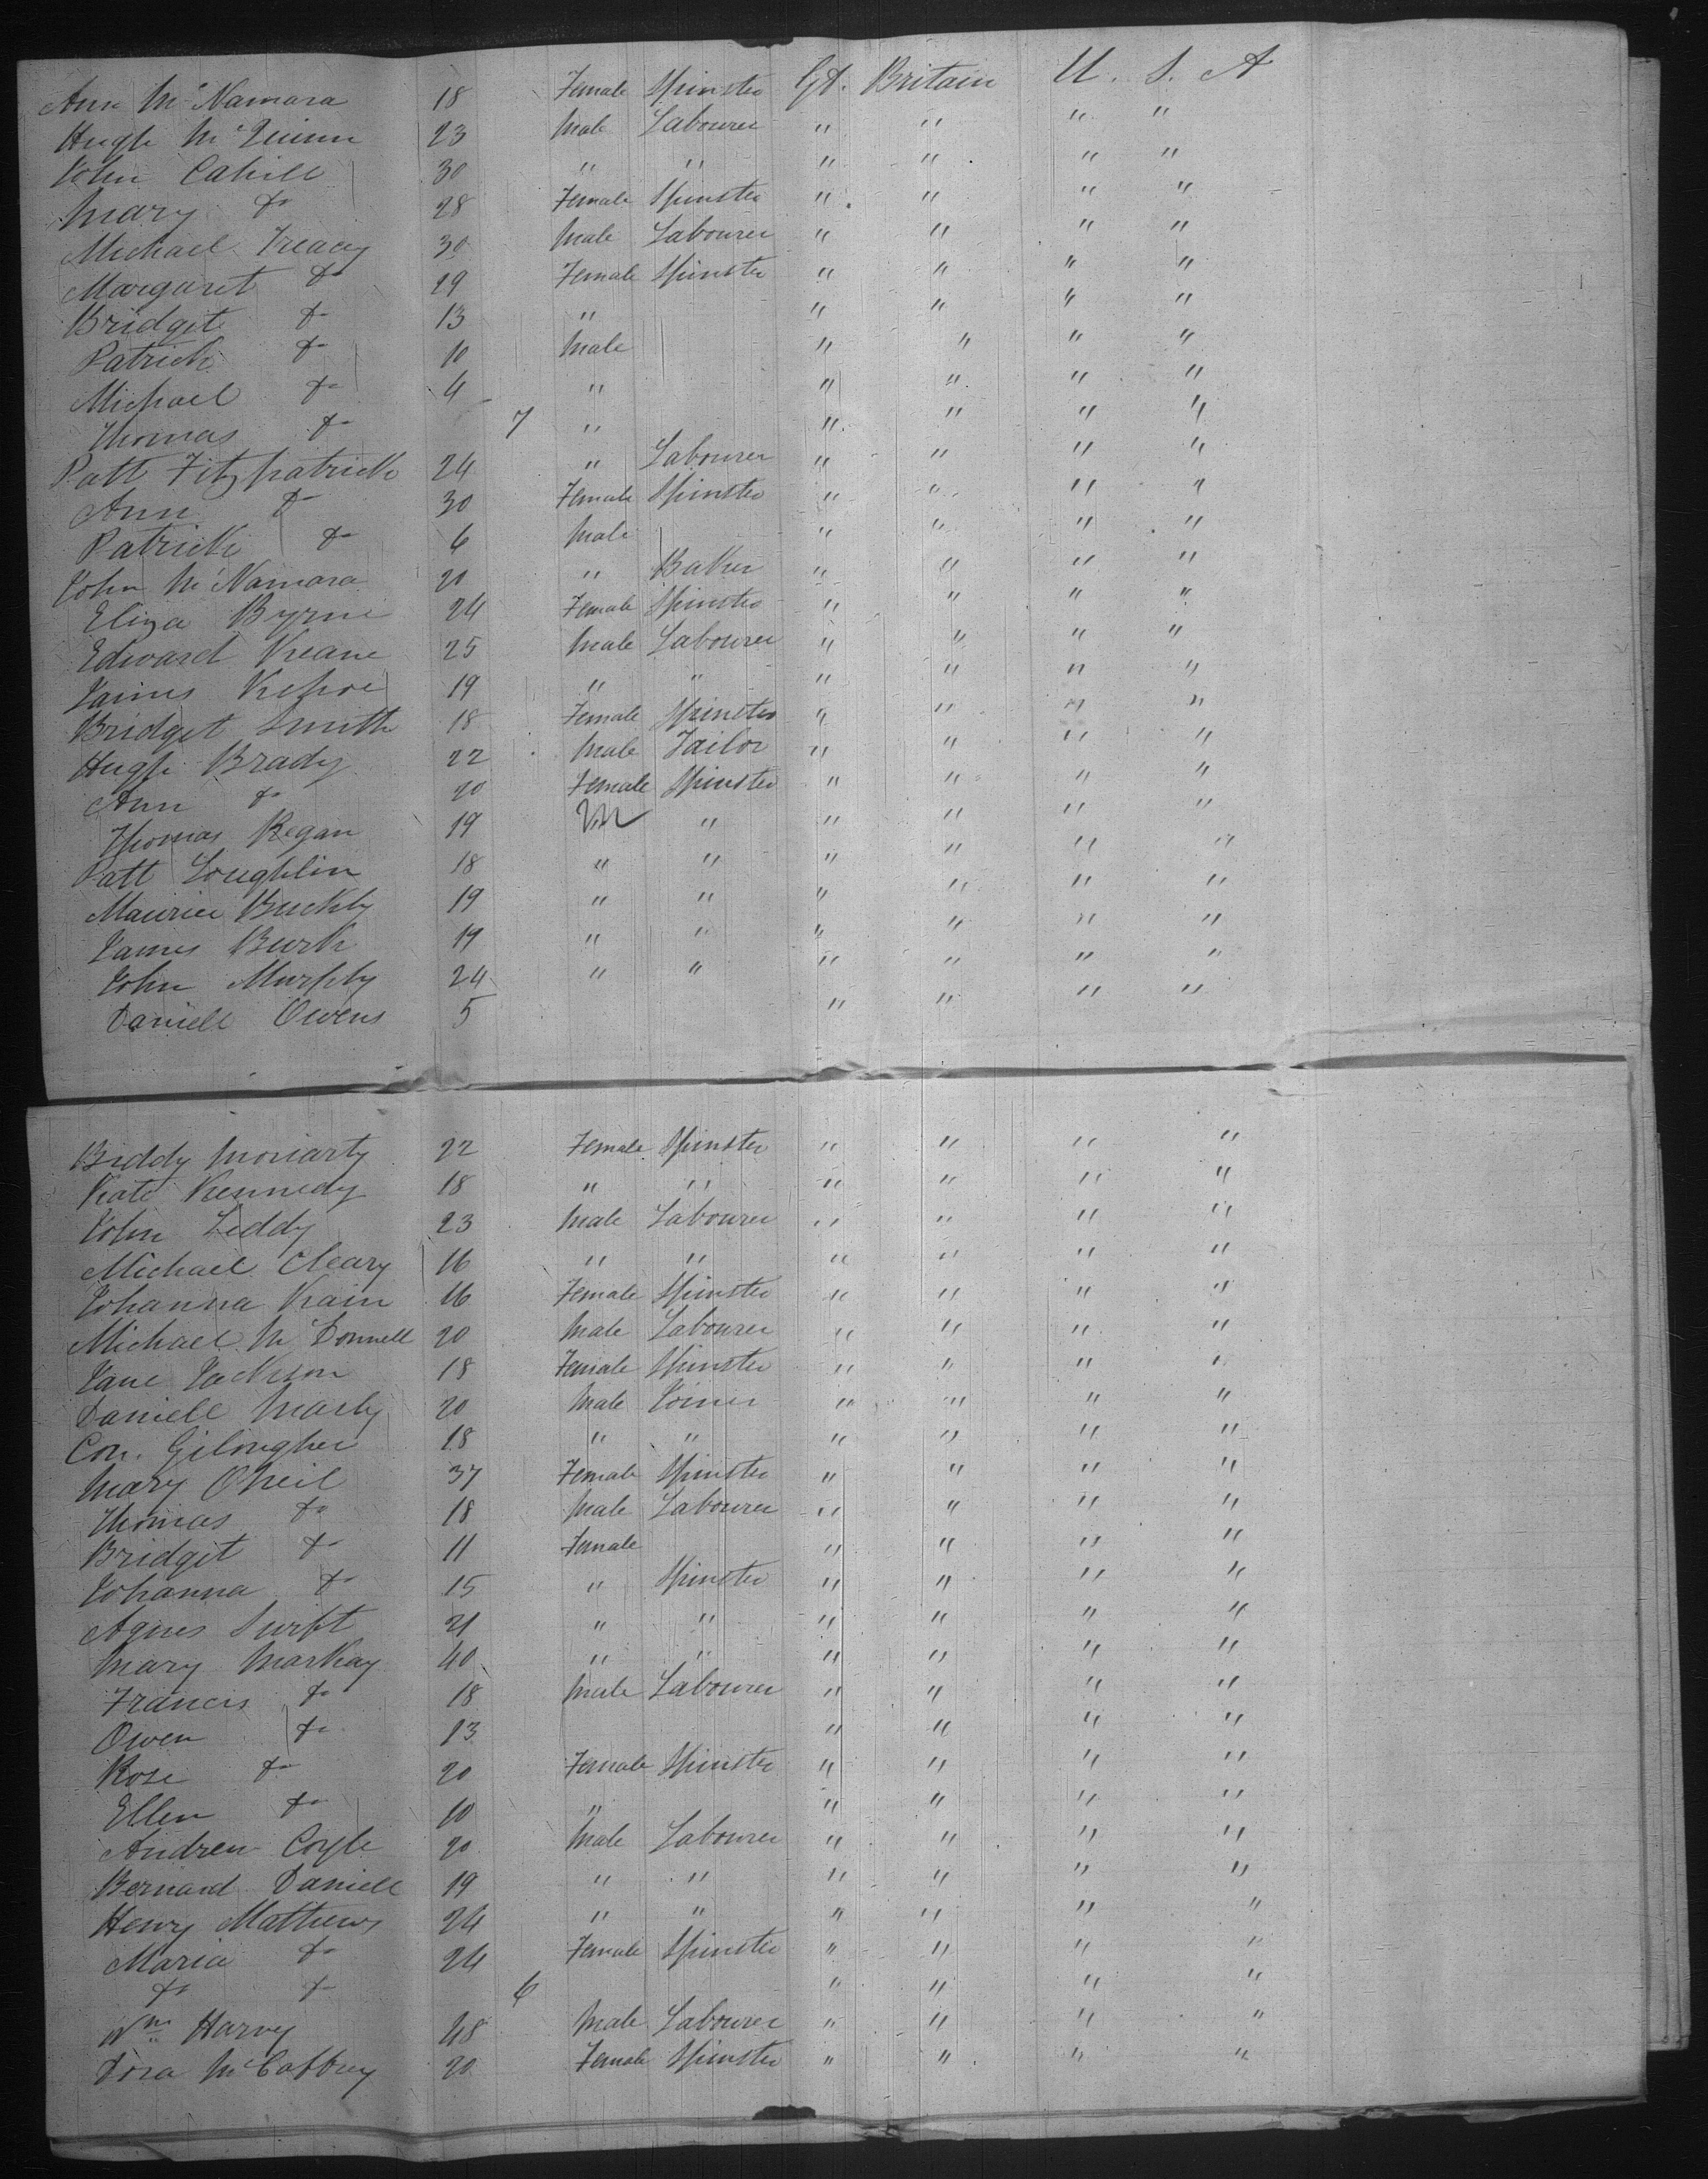 Ann McNamara 18 Female Spinster Gt. Britain U. S. A
Hugh McQuinn 23 Male Labourer " " " "
John Cahill 30 " " " " " "
Mary Do 28 Female Spinster " " " "
Michael Treacy 30 Male Labourer " " " "
Margaret Do 29 Female Spinster " " " "
Bridget Do 13 " " " " "
Patrick Do 10 Male " " " "
Michael Do 4 " " " " "
Thomas Do 7 " " " " "
Patt Fitzpatrick 24 " Labourer " " " "
Ann Do 30 Female Spinster " " " "
Patrick Do 6 Male " " " "
John McNamara 20 " Baker " " " "
Eliza Byrne 24 Female Spinster " " " "
Edward Keane 25 Male Labourer " " " "
James Kehoe 19 " " " " " "
Bridget Smith 18 Female Spinster " " " "
Hugh Brady 22 Male Tailor " " " "
Ann Do 20 Female Spinster " " " "
Thomas Regan 19 M " " " " "
Patt Loughlin 18 " " " " " "
Maurice Buckly 19 " " " " " "
James Burk 19 " " " " " "
John Murphy 24 " " " " " "
Daniell Owens 5 " " " "
Biddy Moriarty 22 Female Spinster " " " "
Kate Kennedy 18 " " " " " "
John Leddy 23 Male Labourer " " " "
Michael Cleary 16 " " " " " "
Johanna Kain 16 Female Spinster " " " "
Michael McDonnell 20 Male Labourer " " " "
Jane Jackson 18 Female Spinster " " " "
Daniell 20 Male Joiner " " " "
Con. Gilougher 18 " " " " " "
Mary ONeil 37 Female Spinster " " " "
Thomas Do 18 Male Labourer " " " "
Bridget Do 11 Female " " " "
Johanna Do 15 " Spinster " " " "
Agnes Swift 21 " " " " " "
Mary Markay 40 " " " " " "
Francis Do 18 Male Labourer " " " "
Owen Do 13 " " " "
Rose Do 20 Female Spinster " " " "
Ellen Do 10 " " " " "
Andrew Coyle 20 Male Labourer " " " "
Bernard Daniell 19 " " " " " "
Henry Mathews 24 " " " " " "
Maria Do 24 Female Spinster " " " "
Do Do 6 " " " "
Wm Harvy 48 Male Labourer " " " "
Dora McCaffrey 20 Female Spinster " " " "